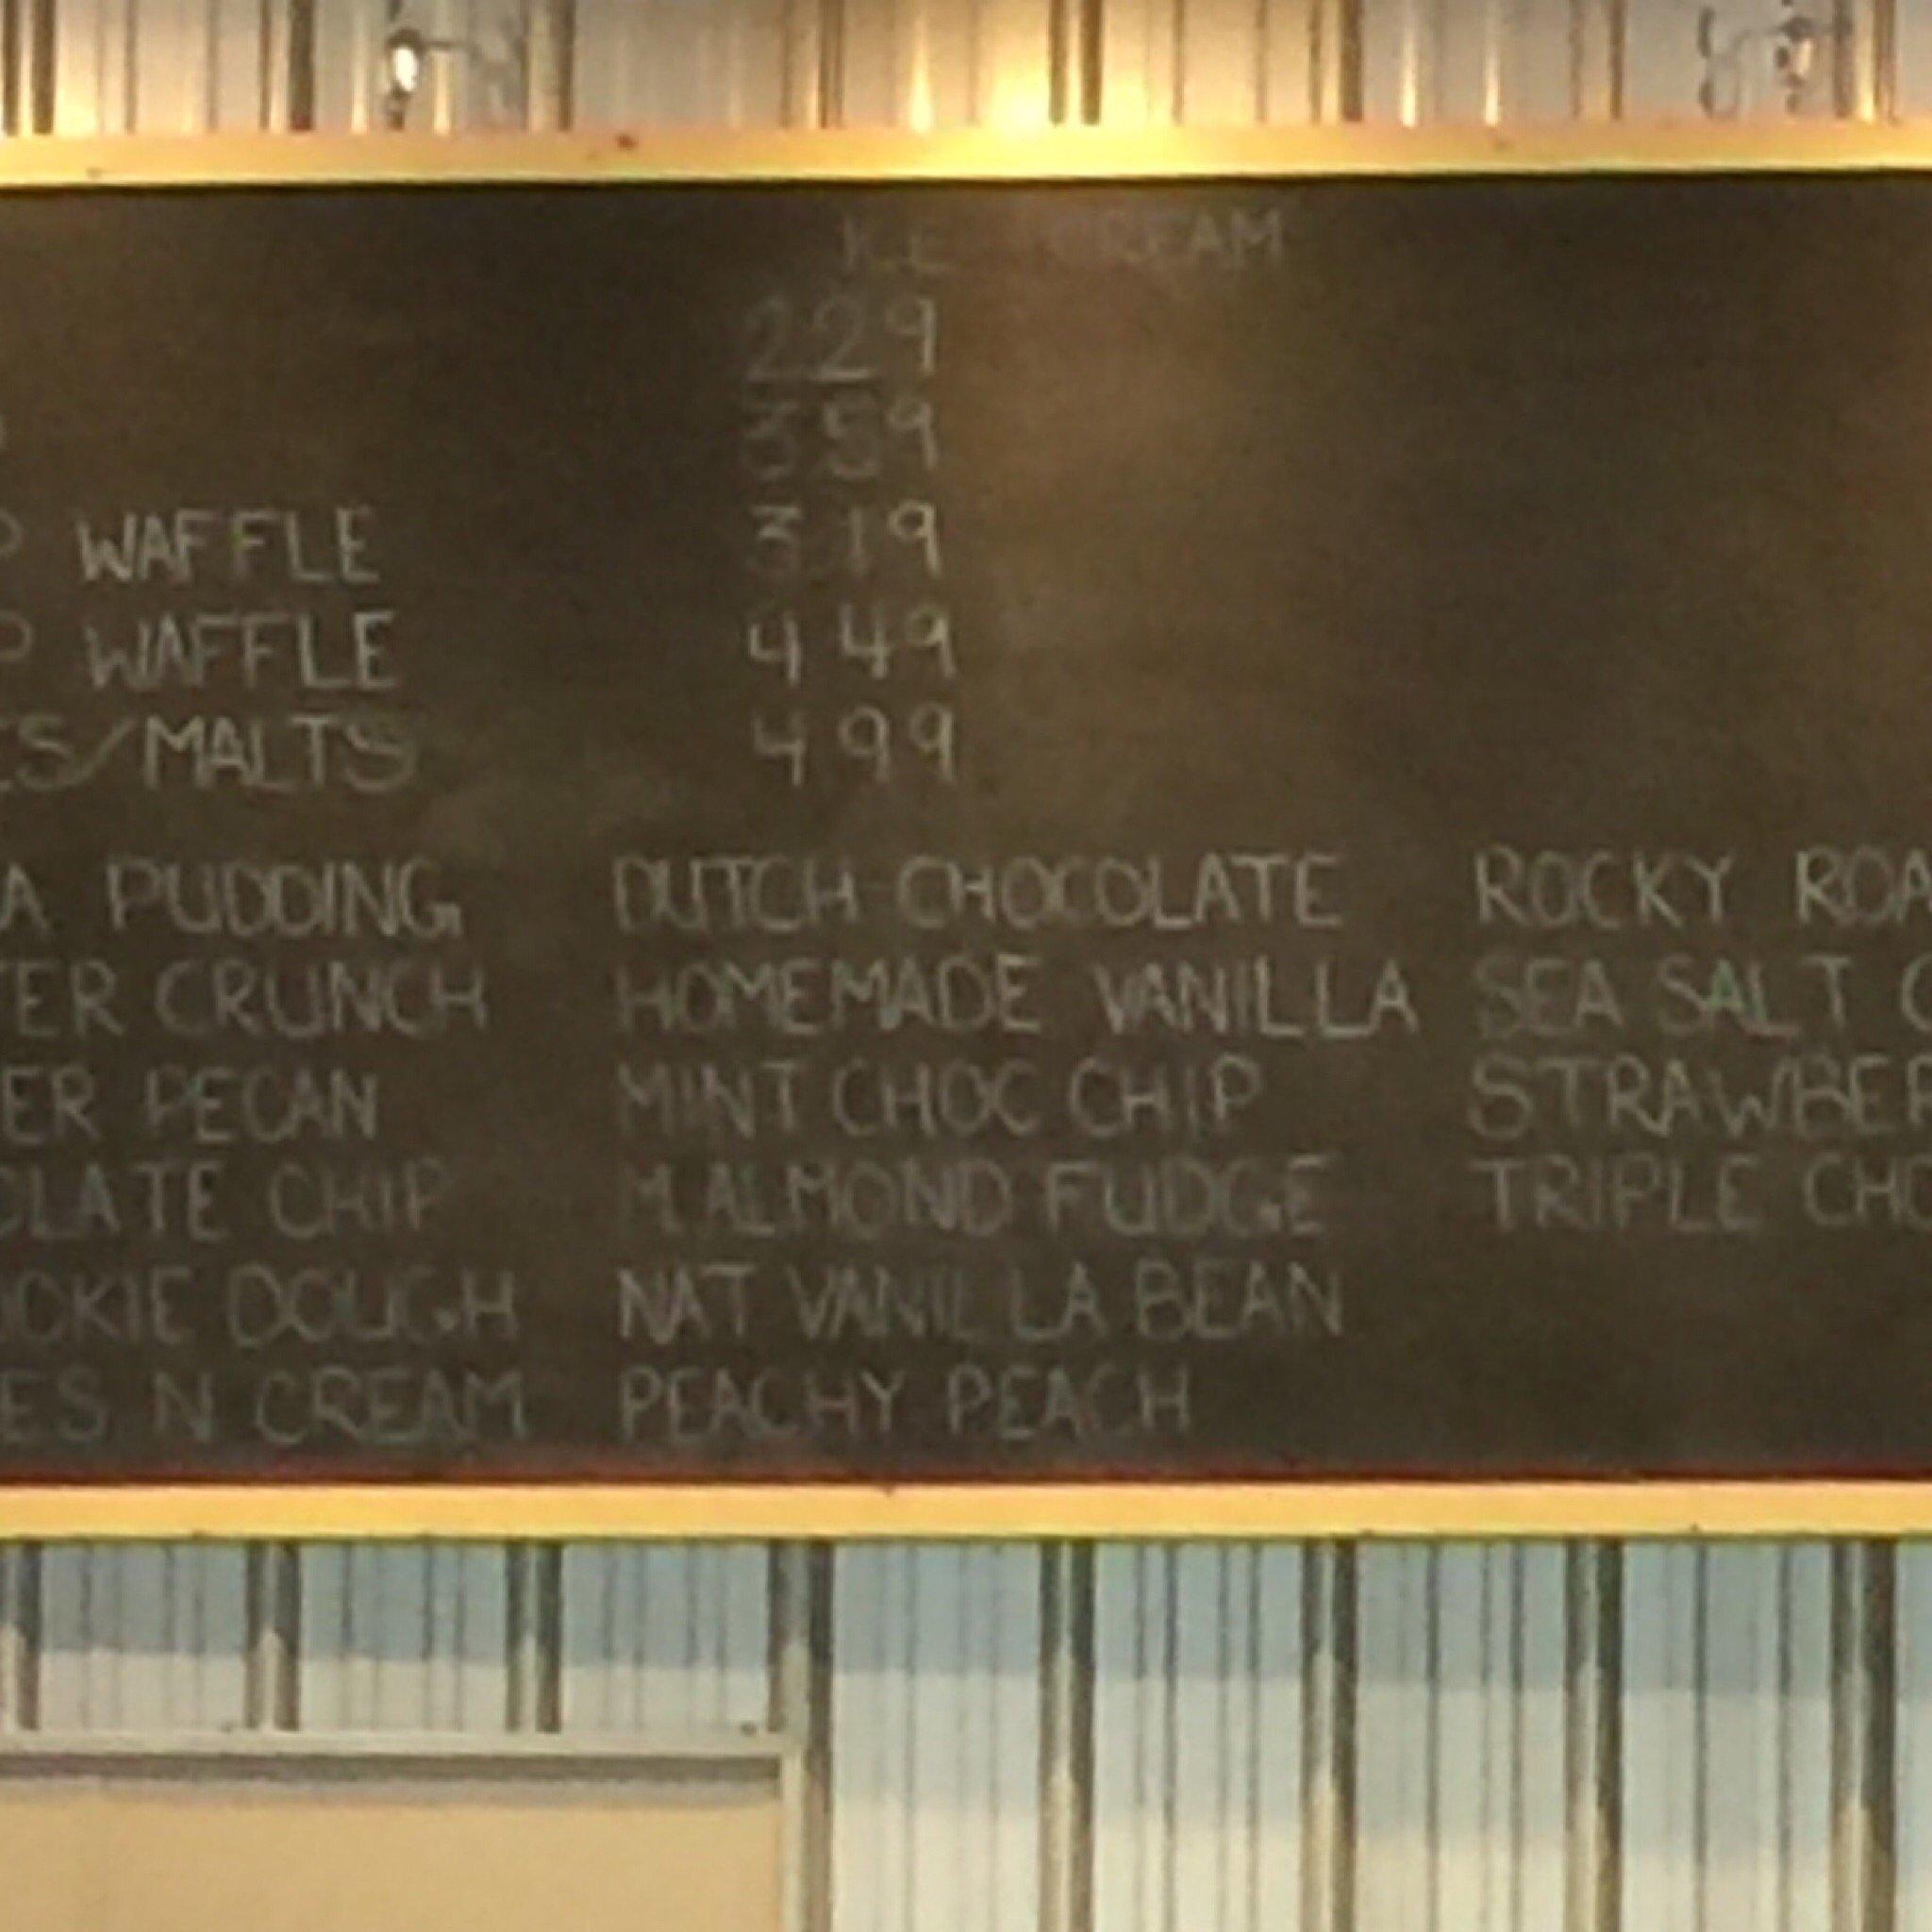 ICE CREAM
229
359
P WAFFLE 319
P WAFFLE 449
ES/MALTS 499
A PUDDING DUTCH CHOCOLATE ROCKY ROA
TER CRUNCH HOMEMADE VANILLA SEA SALT C
ER PECAN MINT CHOC CHIP STRAWBER
OLATE CHIP M.ALMOND FUDGE TRIPLE CHO
OOKIE DOUGH NAT VANILLA BEAN
ES N CREAM PEACHY PEACH